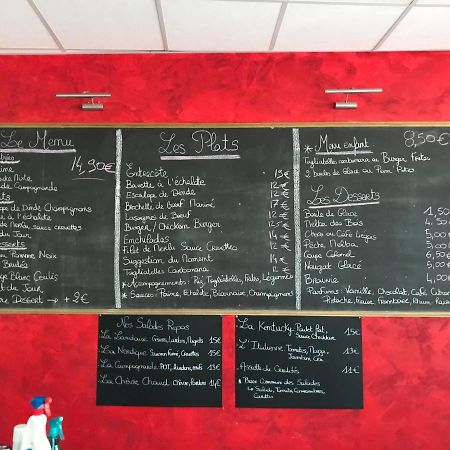 Le Menu
14,90€
de Campagnarde
de Dinde Champignons
à l'échalote
de Merlu sauce crevettes
du Jour
Blanc Coulis
du Jour
Dessert → + 2€
Les Plats
Entrecôte 19€
Bavette à l'échalote 12€
Escalope de Dinde 12€
Brochette de Boeuf Mariné 17€
Lasagnes de Boeuf 12€
Burger / Chicken Burger
Enchiladas 14€
Filet de Merlu Sauce Crevettes
Suggestion du Moment
Tagliatelles Carbonara 12€
* Accompagnements: Riz, Tagliatelles, Frites, Légumes
* Sauces: Poivre, Echalote, Béarnaise, Champignons
* Menu enfant 8,50€
Tagliatelles carbonara ou Burger Frites
2 boules de Glace ou Pom' Potes
Les Desserts
Boule de Glace 1,50
Melba des Bois
Choco ou Café Liégeois
Pêche Melba 5,00
Coupe Colonel
Nougat Glacé
Brownie 4,50
Parfums: Vanille, Chocolat, Café, Citron
Pistache, Fraise, Framboise, Rhum
Nos Salades Repas
La Landaise: Gésiers, Lardons, Magrets 15€
La Nordique: Saumon Fumé, Crevettes 15€
La Campagnarde 15€
La Chèvre Chaud: Chèvre, Lardons 14€
La Kentucky: Poulet Pané, 15€
Sauce Cheddar
L'Italienne: Tomates, Mozza, 13€
Jambon Cru
Assiette de Crudités 11€
* Base Commune des Salades
Salade, Tomates, Concombres,
Carottes